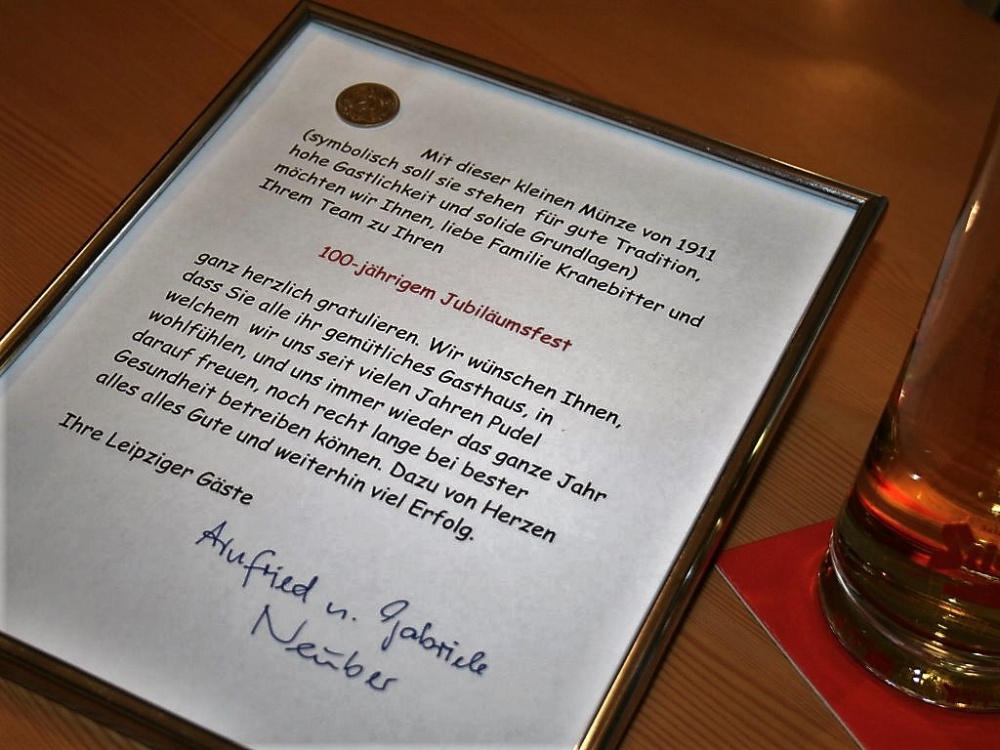 Mit dieser kleinen Münze von 1911
(symbolisch soll sie stehen für gute Tradition,
hohe Gastlichkeit und solide Grundlagen)
möchten wir Ihnen, liebe Familie Kranebitter und
Ihrem Team zu Ihren
100-jährigem Jubiläumsfest
ganz herzlich gratulieren. Wir wünschen Ihnen,
dass Sie alle ihr gemütliches Gasthaus, in
welchem wir uns seit vielen Jahren Pudel
wohlfühlen, und uns immer wieder das ganze Jahr
darauf freuen, noch recht lange bei bester
Gesundheit betreiben können. Dazu von Herzen
alles alles Gute und weiterhin viel Erfolg.
Ihre Leipziger Gäste
u. Gabriele
Neuber